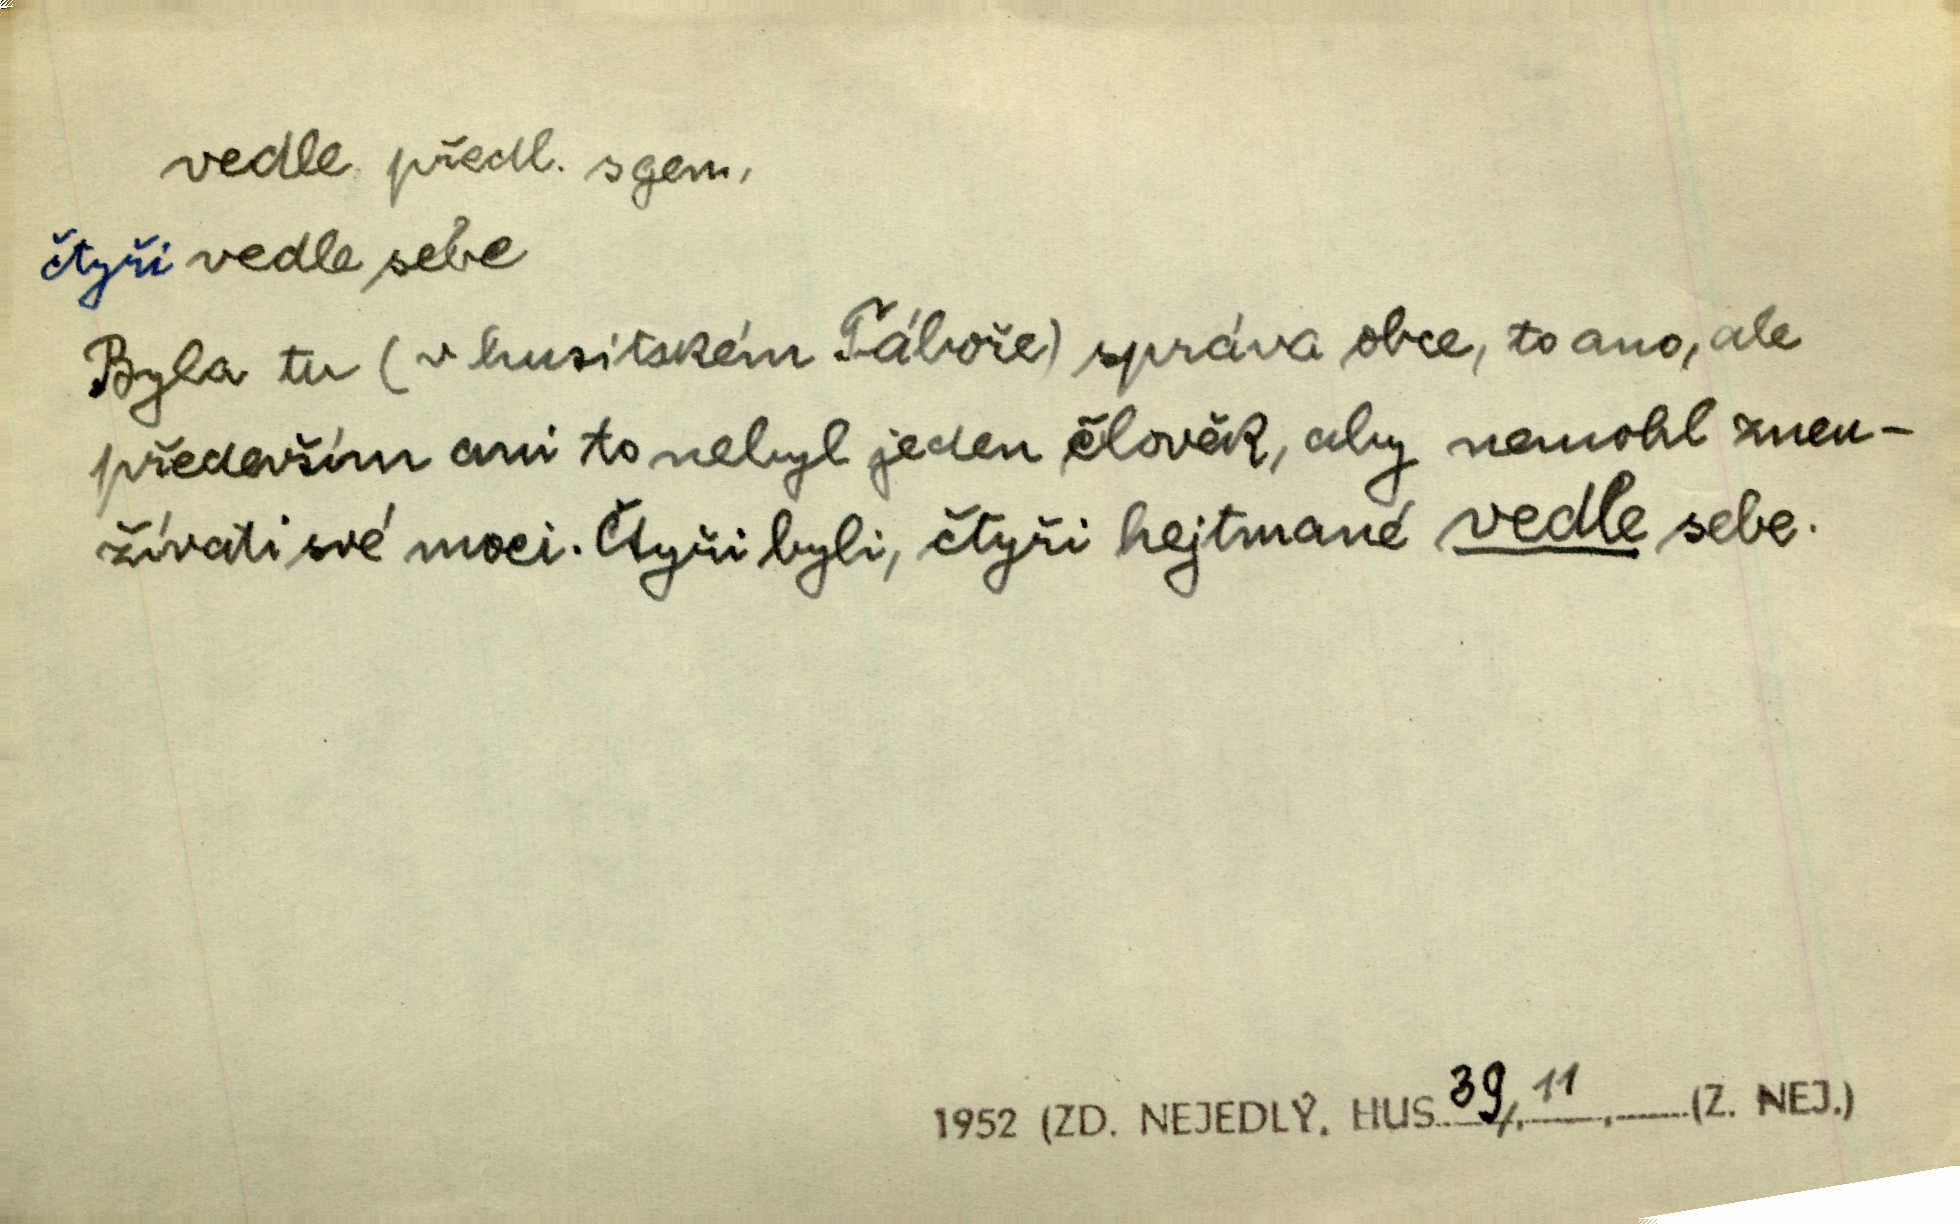 vedle předl. s gen.
čtyři vedle sebe
Byla tu (v husitském Táboře) správa obce, to ano, ale
předevšim ani to nebyl jeden člověk, aby nemohl zneu-
žívati své moci. Čtyři byli, čtyři hejtmané vedle sebe.
1952 (ZD. NEJEDLÝ, HUS 39, 11, (Z. NEJ.)